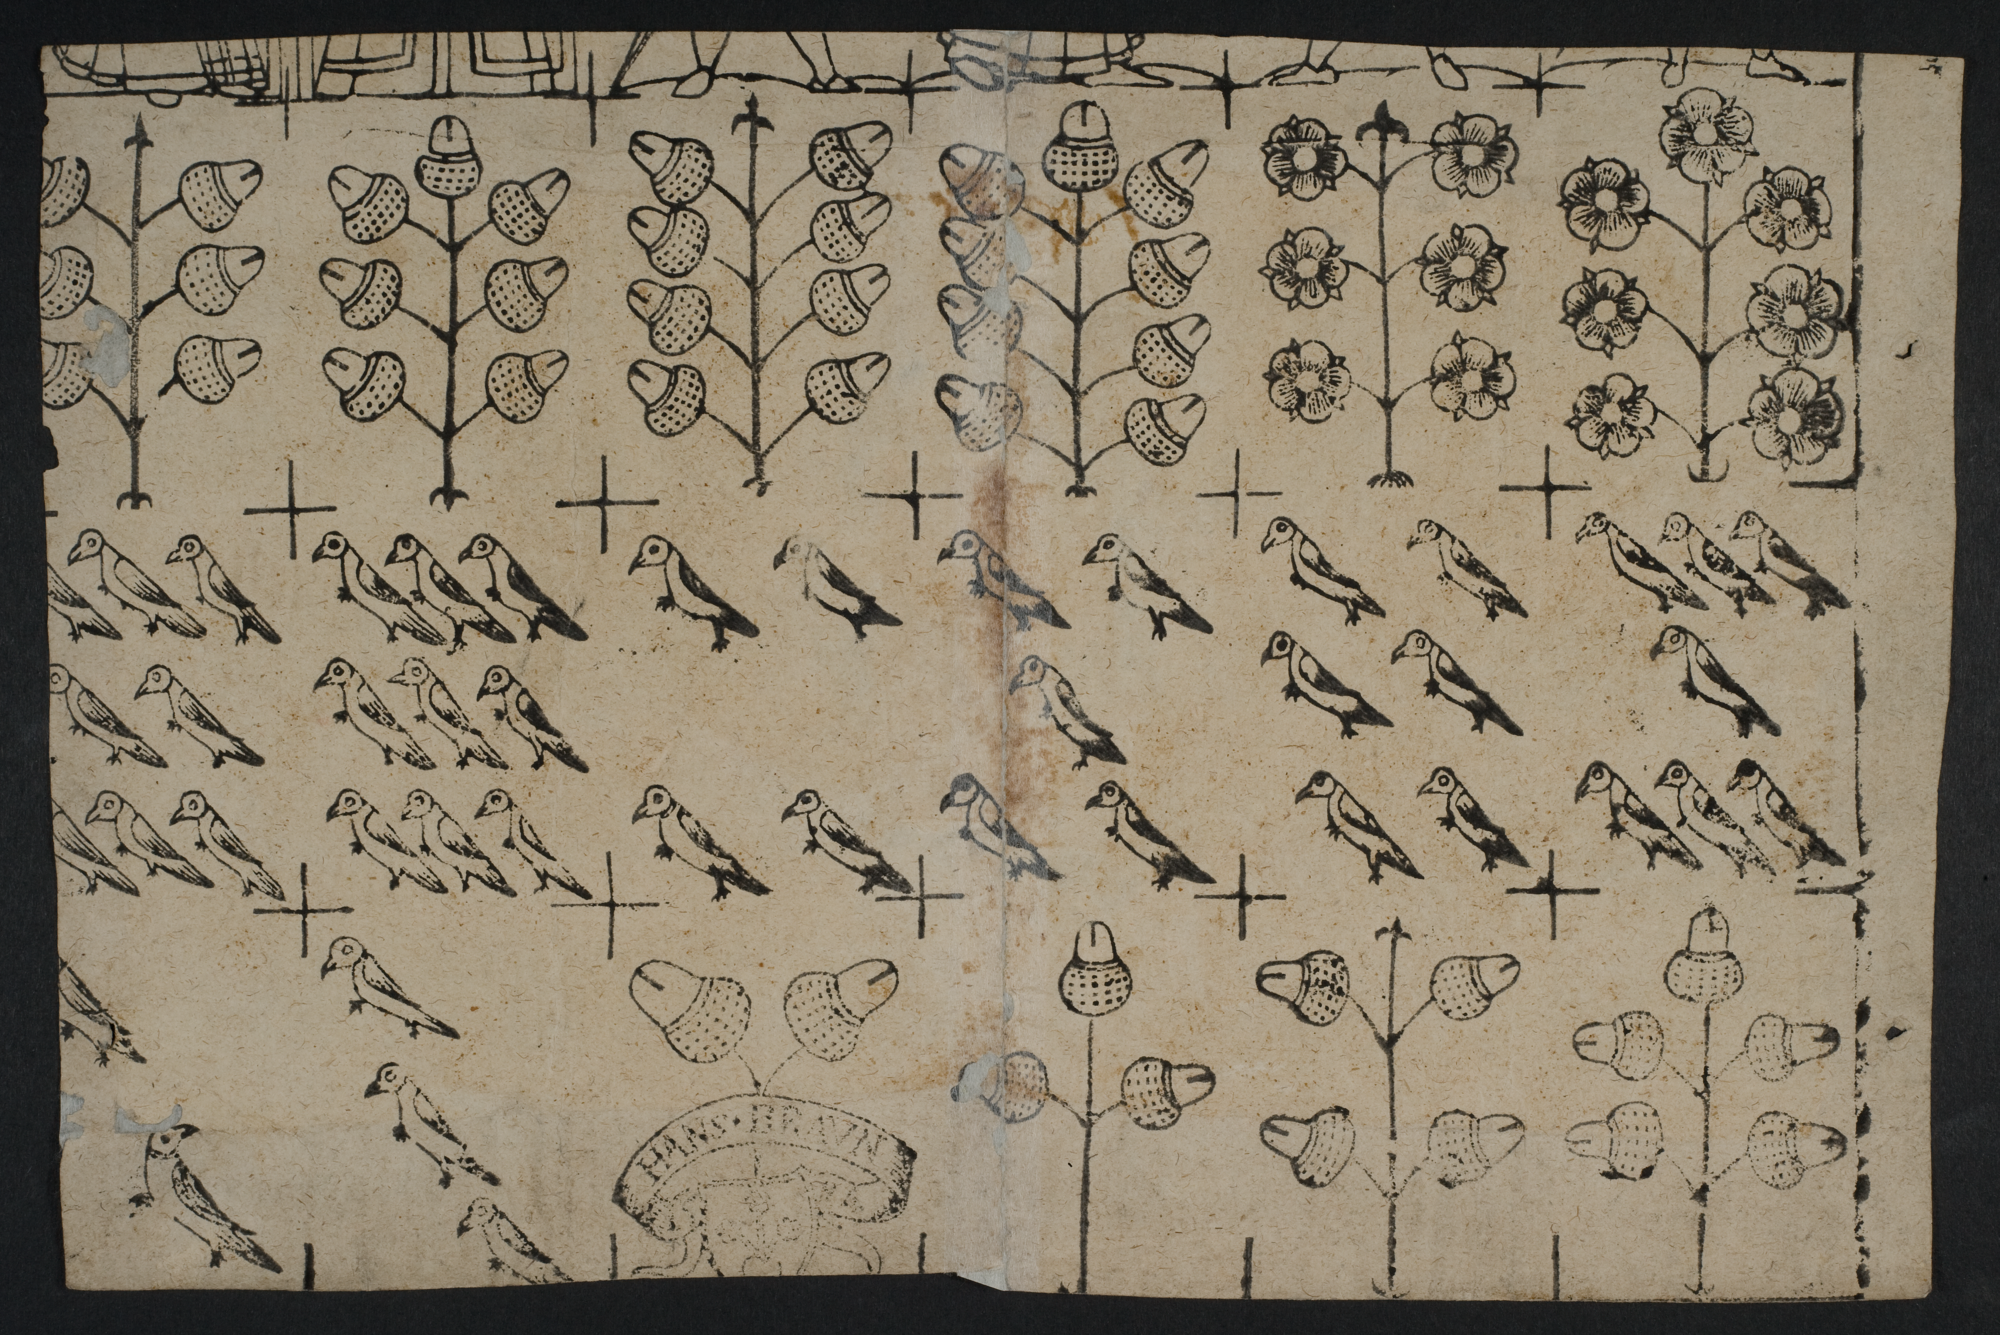 HANS·BRAVN